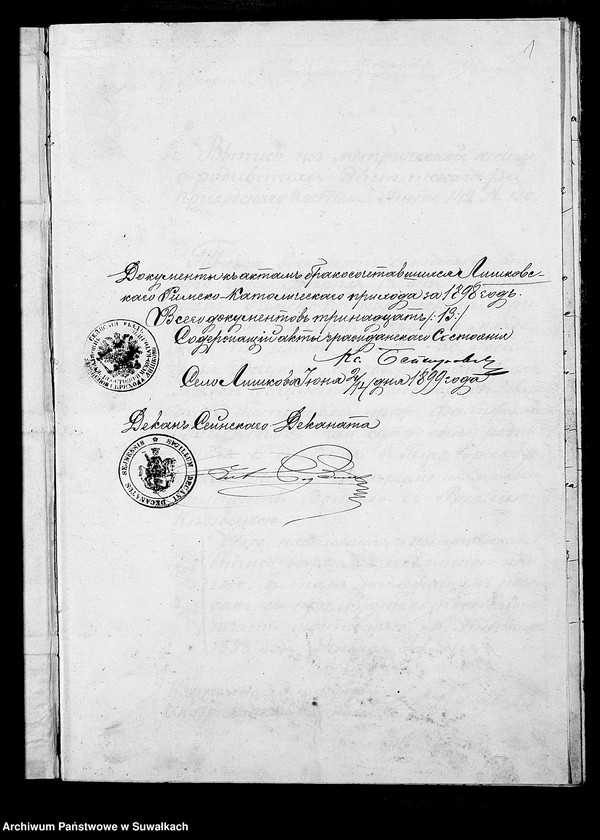 1
Документы къ актамъ бракосочетавшихся Лишковс-
каго Римско-Католическаго прихода за 1898 годъ.
Всего документовъ тринадцать /:13:/
Содержащій акты гражданскаго Состоянія
Кс.
Село Лишково Іюня 2/14 дня 1899 года
Деканъ Сейнскаго Деканата
SIGILLUM DECANI DECANATUS SEJNENSIS
Archiwum Państwowe w Suwałkach